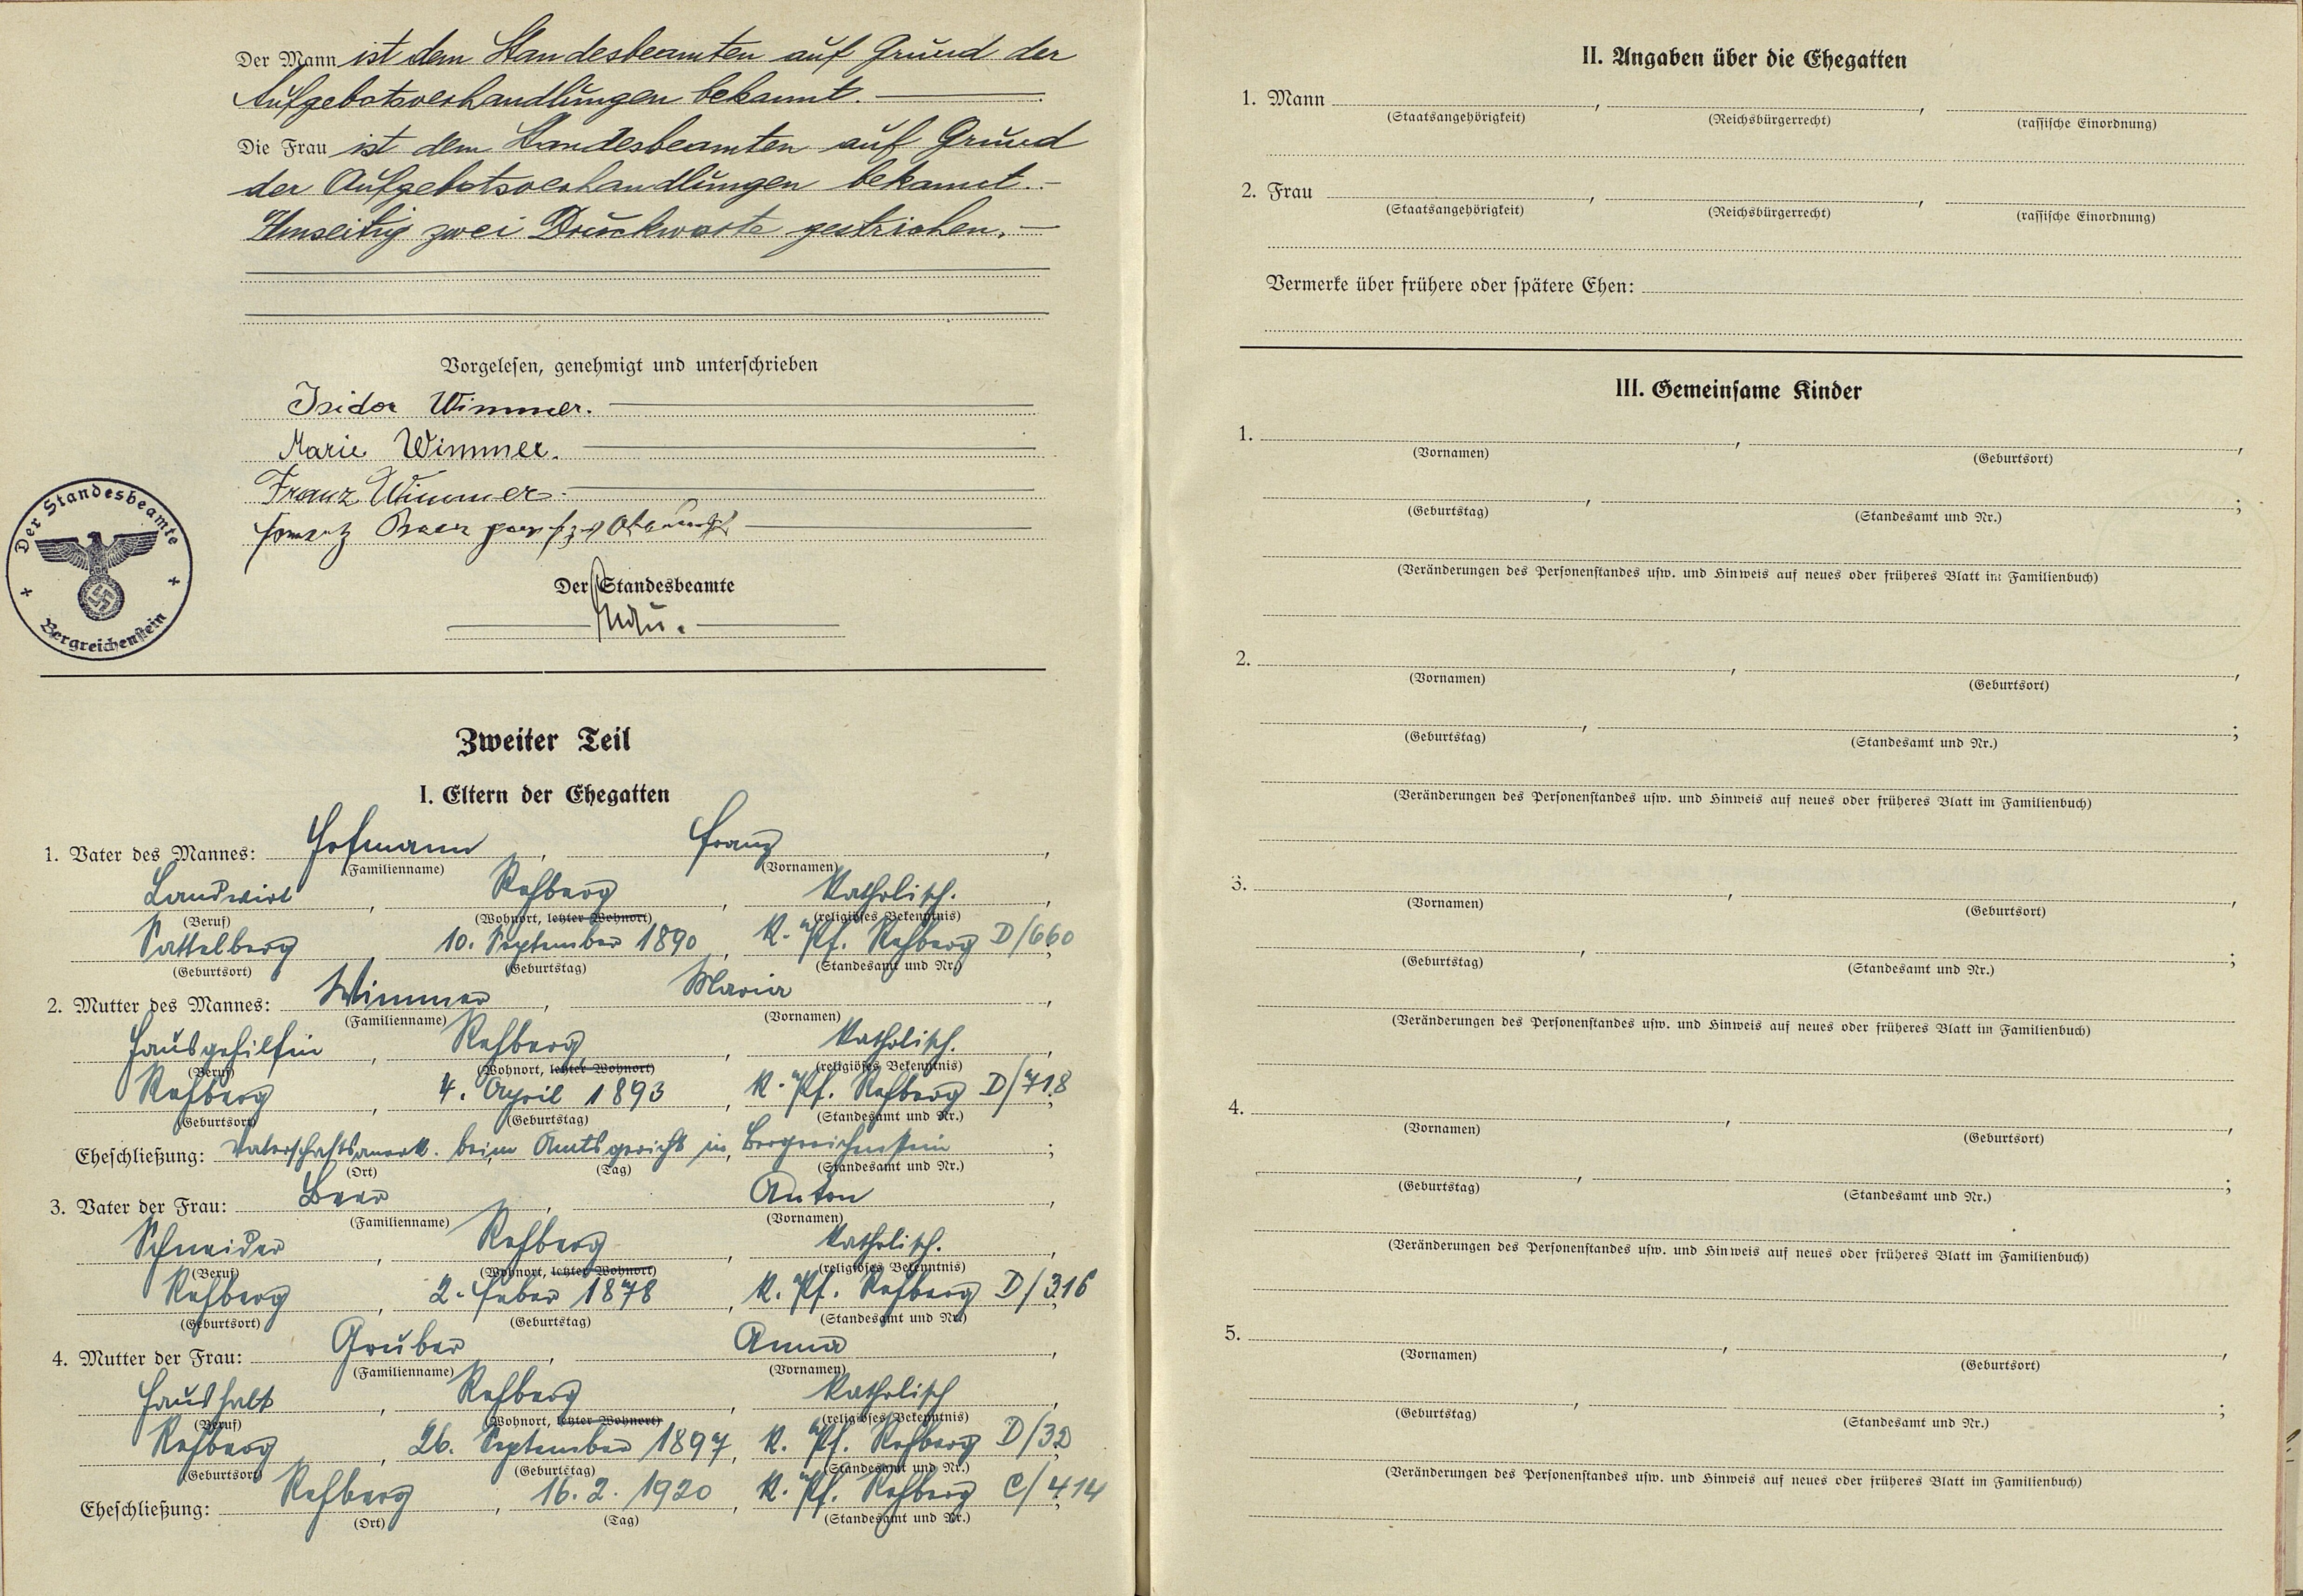 Der Mann ist dem Standesbeamten auf Grund der
Aufgebotsverhandlungen bekannt.
Die Frau ist dem Standesbeamten auf Grund
der Aufgebotsverhandlungen bekannt.
Umseitig zwei Druckworte gestrichen.
Vorgelesen, genehmigt und unterschrieben
Isidor Wimmer.
Marie Wimmer.
Franz Wimmer.
Der Standesbeamte
Der Standesbeamte
Bergreichenstein
Zweiter Teil
I. Eltern der Ehegatten
1. Vater des Mannes: Hofmann, Franz,
(Familienname) (Vornamen)
Landwirt, Rehberg, katholisch.,
(Beruf) (Wohnort, letzter Wohnort) (religiöses Bekenntnis)
Sattelberg, 10. September 1890, K. Pf. Rehberg D/660;
(Geburtsort) (Geburtstag) (Standesamt und Nr.)
2. Mutter des Mannes: Wimmer, Maria,
(Familienname) (Vornamen)
Hausgehilfin, Rehberg, katholisch.,
(Beruf) (Wohnort, letzter Wohnort) (religiöses Bekenntnis)
Rehberg, 4. April 1893, K. Pf. Rehberg D/718;
(Geburtsort) (Geburtstag) (Standesamt und Nr.)
Eheschließung: Vaterschaftsanerk. beim Amtsgericht in Bergreichenstein;
(Ort) (Tag) (Standesamt und Nr.)
3. Vater der Frau: Beer, Anton,
(Familienname) (Vornamen)
Schneider, Rehberg, katholisch.,
(Beruf) (Wohnort, letzter Wohnort) (religiöses Bekenntnis)
Rehberg, 2. Feber 1878, K. Pf. Rehberg D/316;
(Geburtsort) (Geburtstag) (Standesamt und Nr.)
4. Mutter der Frau: Gruber, Anna,
(Familienname) (Vornamen)
Haushalt, Rehberg, katholisch,
(Beruf) (Wohnort, letzter Wohnort) (religiöses Bekenntnis)
Rehberg, 26. September 1897, K. Pf. Rehberg D/32;
(Geburtsort) (Geburtstag) (Standesamt und Nr.)
Eheschließung: Rehberg, 16. 2. 1920, K. Pf. Rehberg C/414;
(Ort) (Tag) (Standesamt und Nr.)
II. Angaben über die Ehegatten
1. Mann , ,
(Staatsangehörigkeit) (Reichsbürgerrecht) (rassische Einordnung)
2. Frau , ,
(Staatsangehörigkeit) (Reichsbürgerrecht) (rassische Einordnung)
Vermerke über frühere oder spätere Ehen:
III. Gemeinsame Kinder
1. , ,
(Vornamen) (Geburtsort)
, ;
(Geburtstag) (Standesamt und Nr.)
(Veränderungen des Personenstandes usw. und Hinweis auf neues oder früheres Blatt im Familienbuch)
2. , ,
(Vornamen) (Geburtsort)
, ;
(Geburtstag) (Standesamt und Nr.)
(Veränderungen des Personenstandes usw. und Hinweis auf neues oder früheres Blatt im Familienbuch)
3. , ,
(Vornamen) (Geburtsort)
, ;
(Geburtstag) (Standesamt und Nr.)
(Veränderungen des Personenstandes usw. und Hinweis auf neues oder früheres Blatt im Familienbuch)
4. , ,
(Vornamen) (Geburtsort)
, ;
(Geburtstag) (Standesamt und Nr.)
(Veränderungen des Personenstandes usw. und Hinweis auf neues oder früheres Blatt im Familienbuch)
5. , ,
(Vornamen) (Geburtsort)
, ;
(Geburtstag) (Standesamt und Nr.)
(Veränderungen des Personenstandes usw. und Hinweis auf neues oder früheres Blatt im Familienbuch)